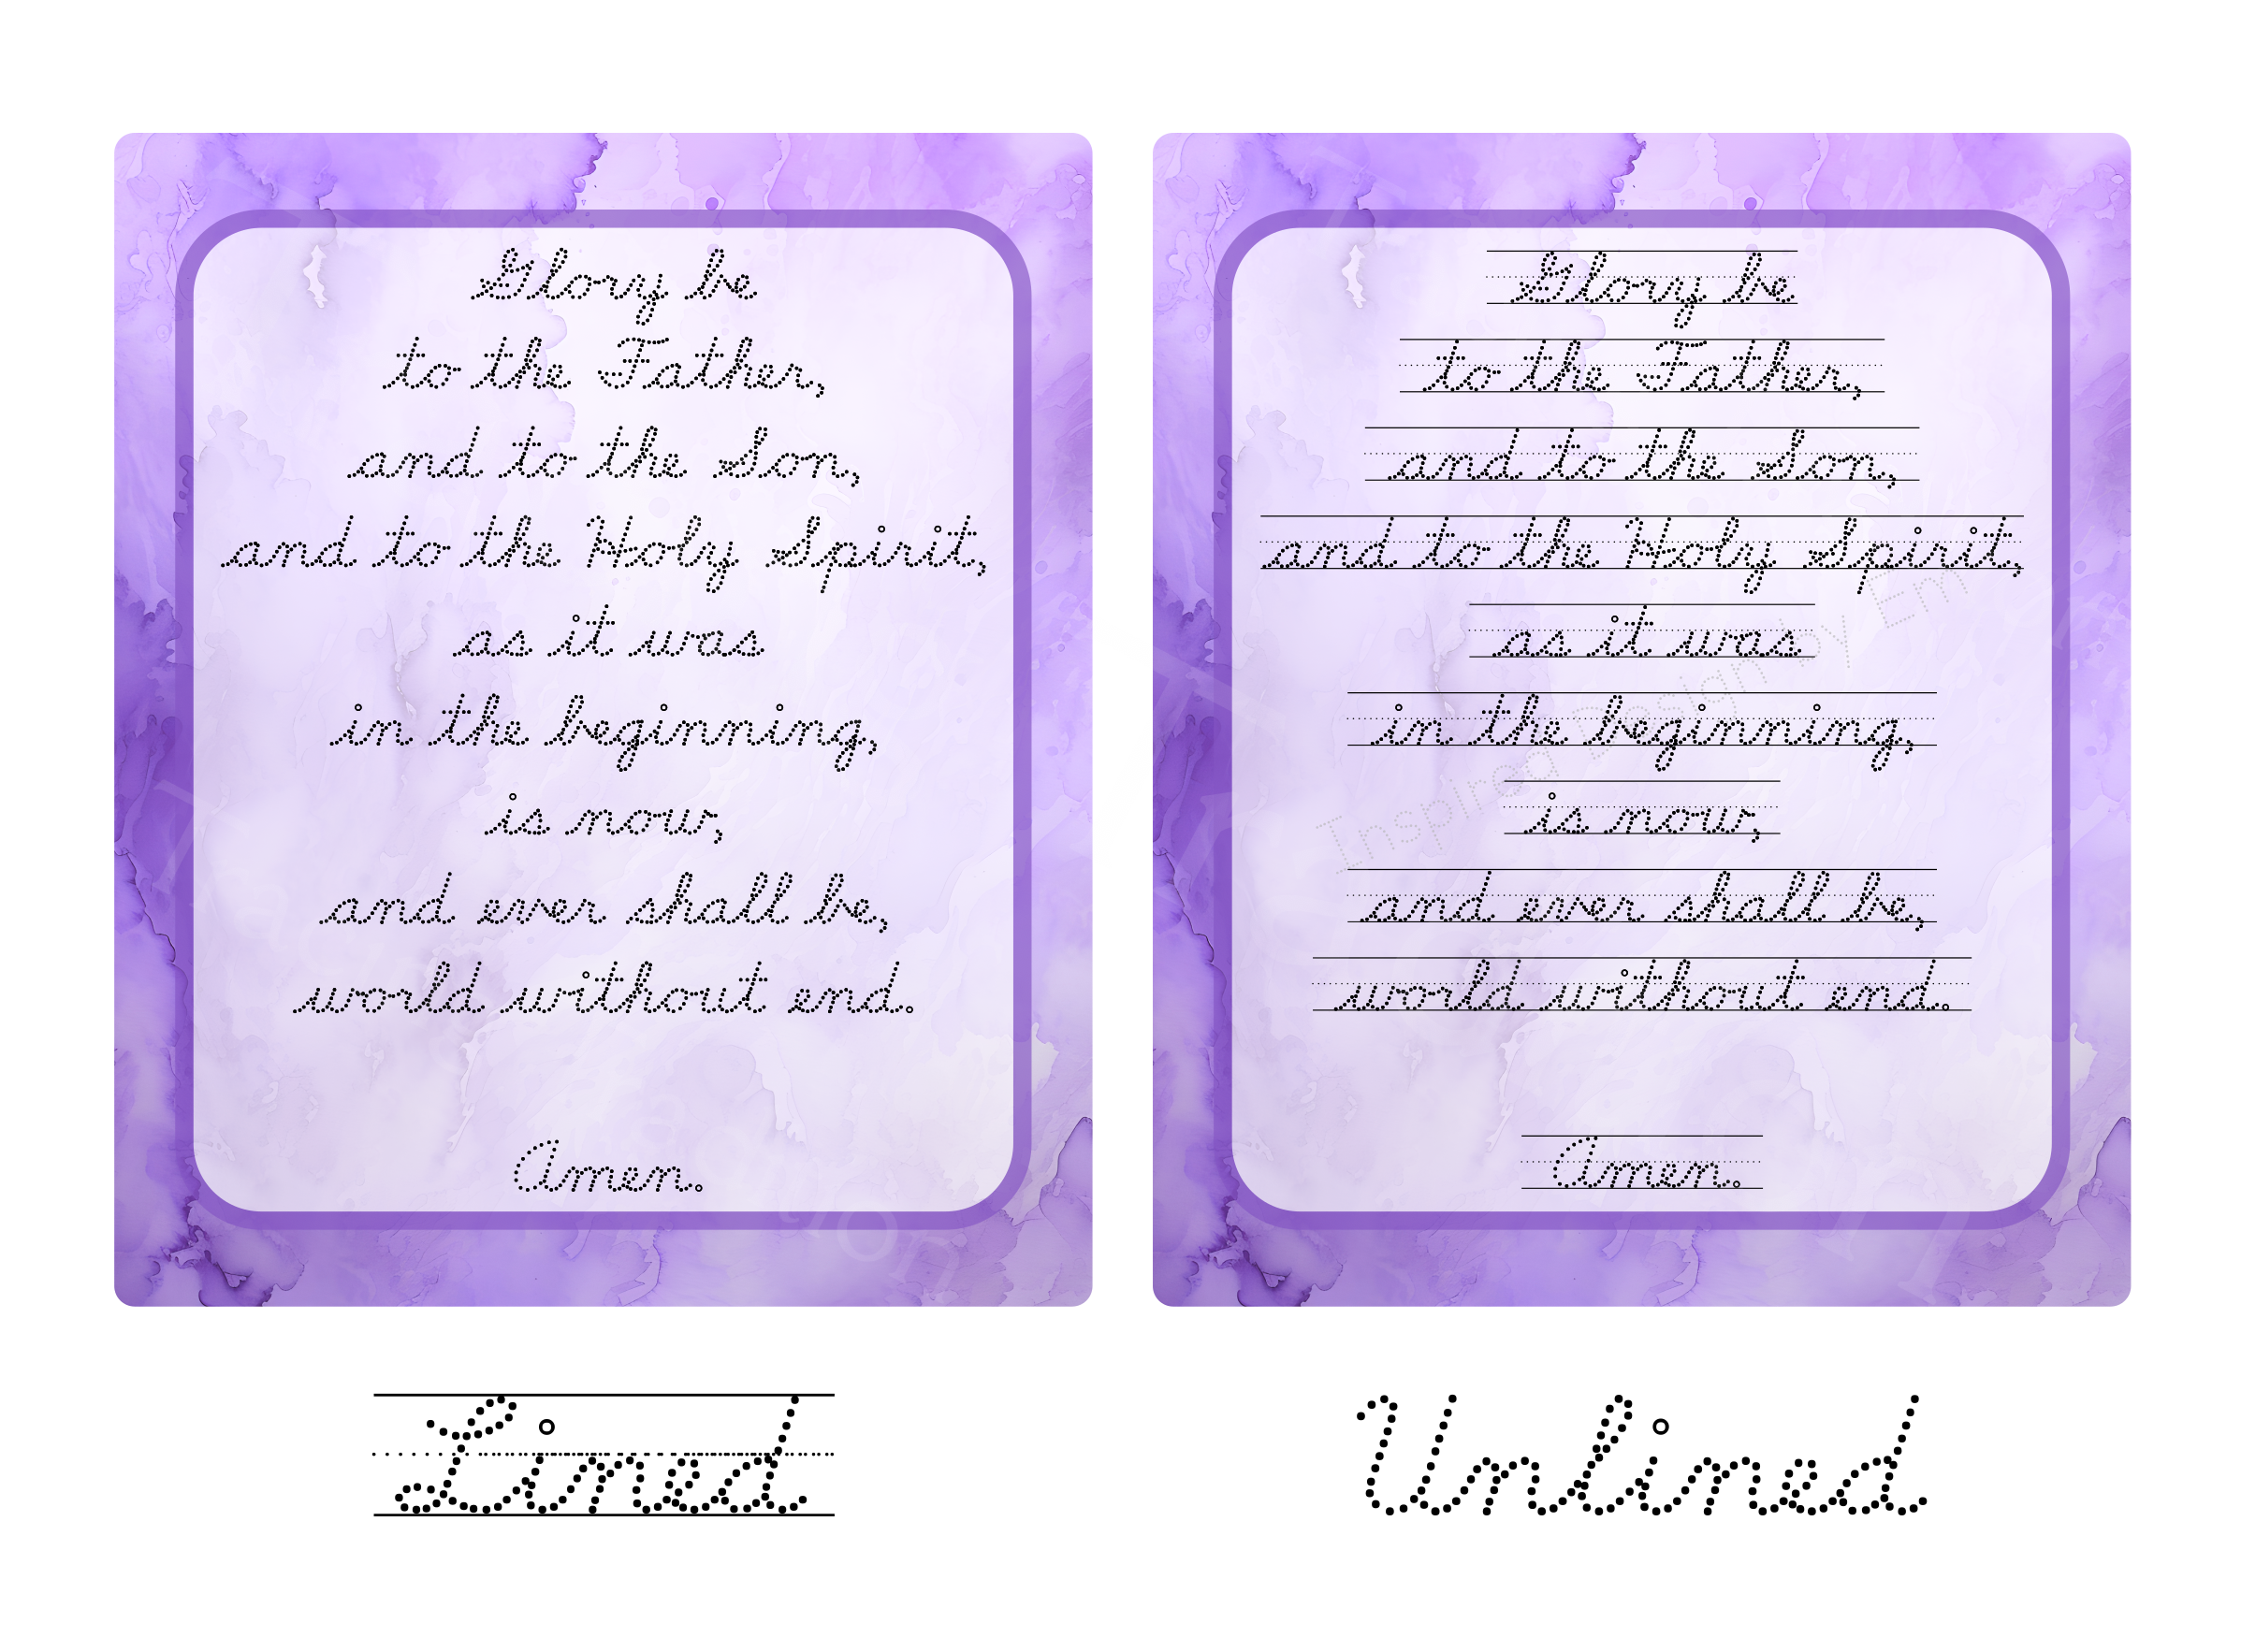 Glory be
to the Father,
and to the Son,
and to the Holy Spirit,
as it was
in the beginning,
is now,
and ever shall be,
world without end.
Amen.
Lined
Glory be
to the Father,
and to the Son,
and to the Holy Spirit,
as it was
in the beginning,
is now,
and ever shall be,
world without end.
Amen.
Inspired Design by Em
Unlined